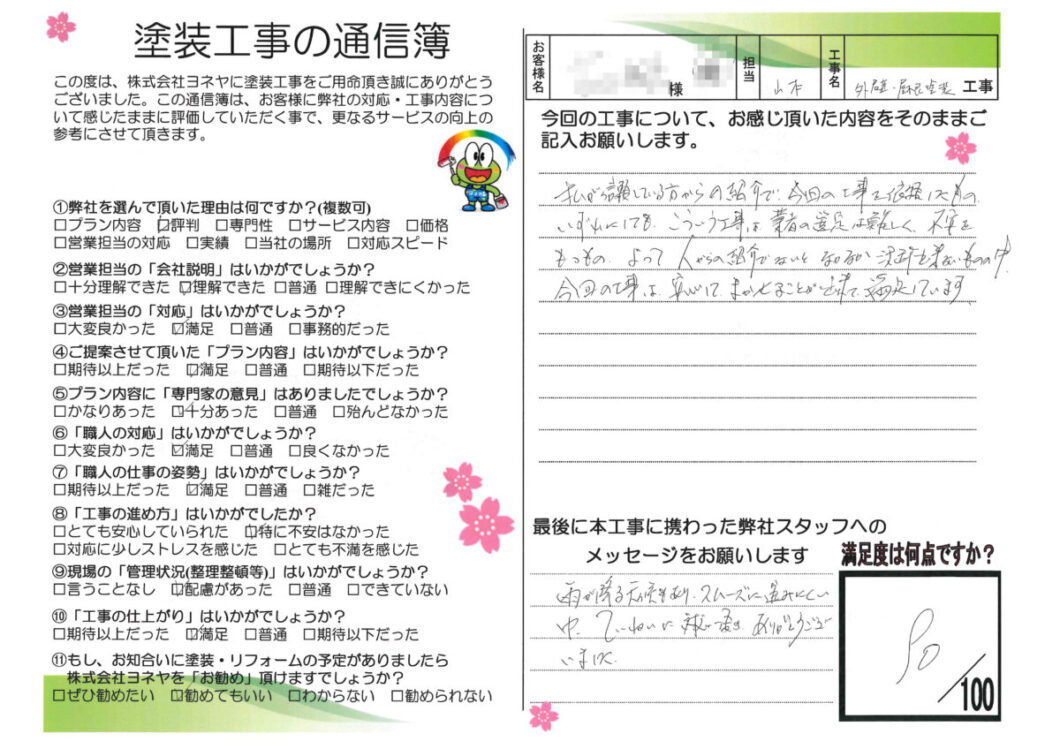 塗装工事の通信簿
この度は、株式会社ヨネヤに塗装工事をご用命頂き誠にありがとう
ございました。この通信簿は、お客様に弊社の対応・工事内容につ
いて感じたままに評価していただく事で、更なるサービスの向上の
参考にさせて頂きます。
①弊社を選んで頂いた理由は何ですか?(複数可)
□プラン内容 ☑評判 □専門性 □サービス内容 □価格
□営業担当の対応 □実績 □当社の場所 □対応スピード
②営業担当の「会社説明」はいかがでしょうか?
□十分理解できた ☑理解できた □普通 □理解できにくかった
③営業担当の「対応」はいかがでしょうか?
□大変良かった ☑満足 □普通 □事務的だった
④ご提案させて頂いた「プラン内容」はいかがでしょうか?
□期待以上だった ☑満足 □普通 □期待以下だった
⑤プラン内容に「専門家の意見」はありましたでしょうか?
□かなりあった ☑十分あった □普通 □殆んどなかった
⑥「職人の対応」はいかがでしょうか?
□大変良かった ☑満足 □普通 □良くなかった
⑦「職人の仕事の姿勢」はいかがでしょうか?
□期待以上だった ☑満足 □普通 □雑だった
⑧「工事の進め方」はいかがでしたか?
□とても安心していられた ☑特に不安はなかった
□対応に少しストレスを感じた □とても不満を感じた
⑨現場の「管理状況(整理整頓等)」はいかがでしょうか?
□言うことなし ☑配慮があった □普通 □できていない
⑩「工事の仕上がり」はいかがでしょうか?
□期待以上だった ☑満足 □普通 □期待以下だった
⑪もし、お知合いに塗装・リフォームの予定がありましたら
株式会社ヨネヤを「お勧め」頂けますでしょうか?
□ぜひ勧めたい ☑勧めてもいい □わからない □勧められない
お客様名 様 担当 山本 工事名 外壁・屋根塗装 工事
今回の工事について、お感じ頂いた内容をそのままご
記入お願いします。
私が信頼している方からの紹介で、今回の工事を依頼したもの。
いずれにしても、こういう工事は業者の選定は難しく、不安を
もつもの。よって人からの紹介でないとなかなか決断出来ないものの中
今回の工事は、安心して、まかせることが出来て、満足しています
最後に本工事に携わった弊社スタッフへの
メッセージをお願いします
雨が降る天候もあり、スムーズに進みにくい
中、ていねいに対応して頂き、ありがとうござ
いました。
満足度は何点ですか?
90/100